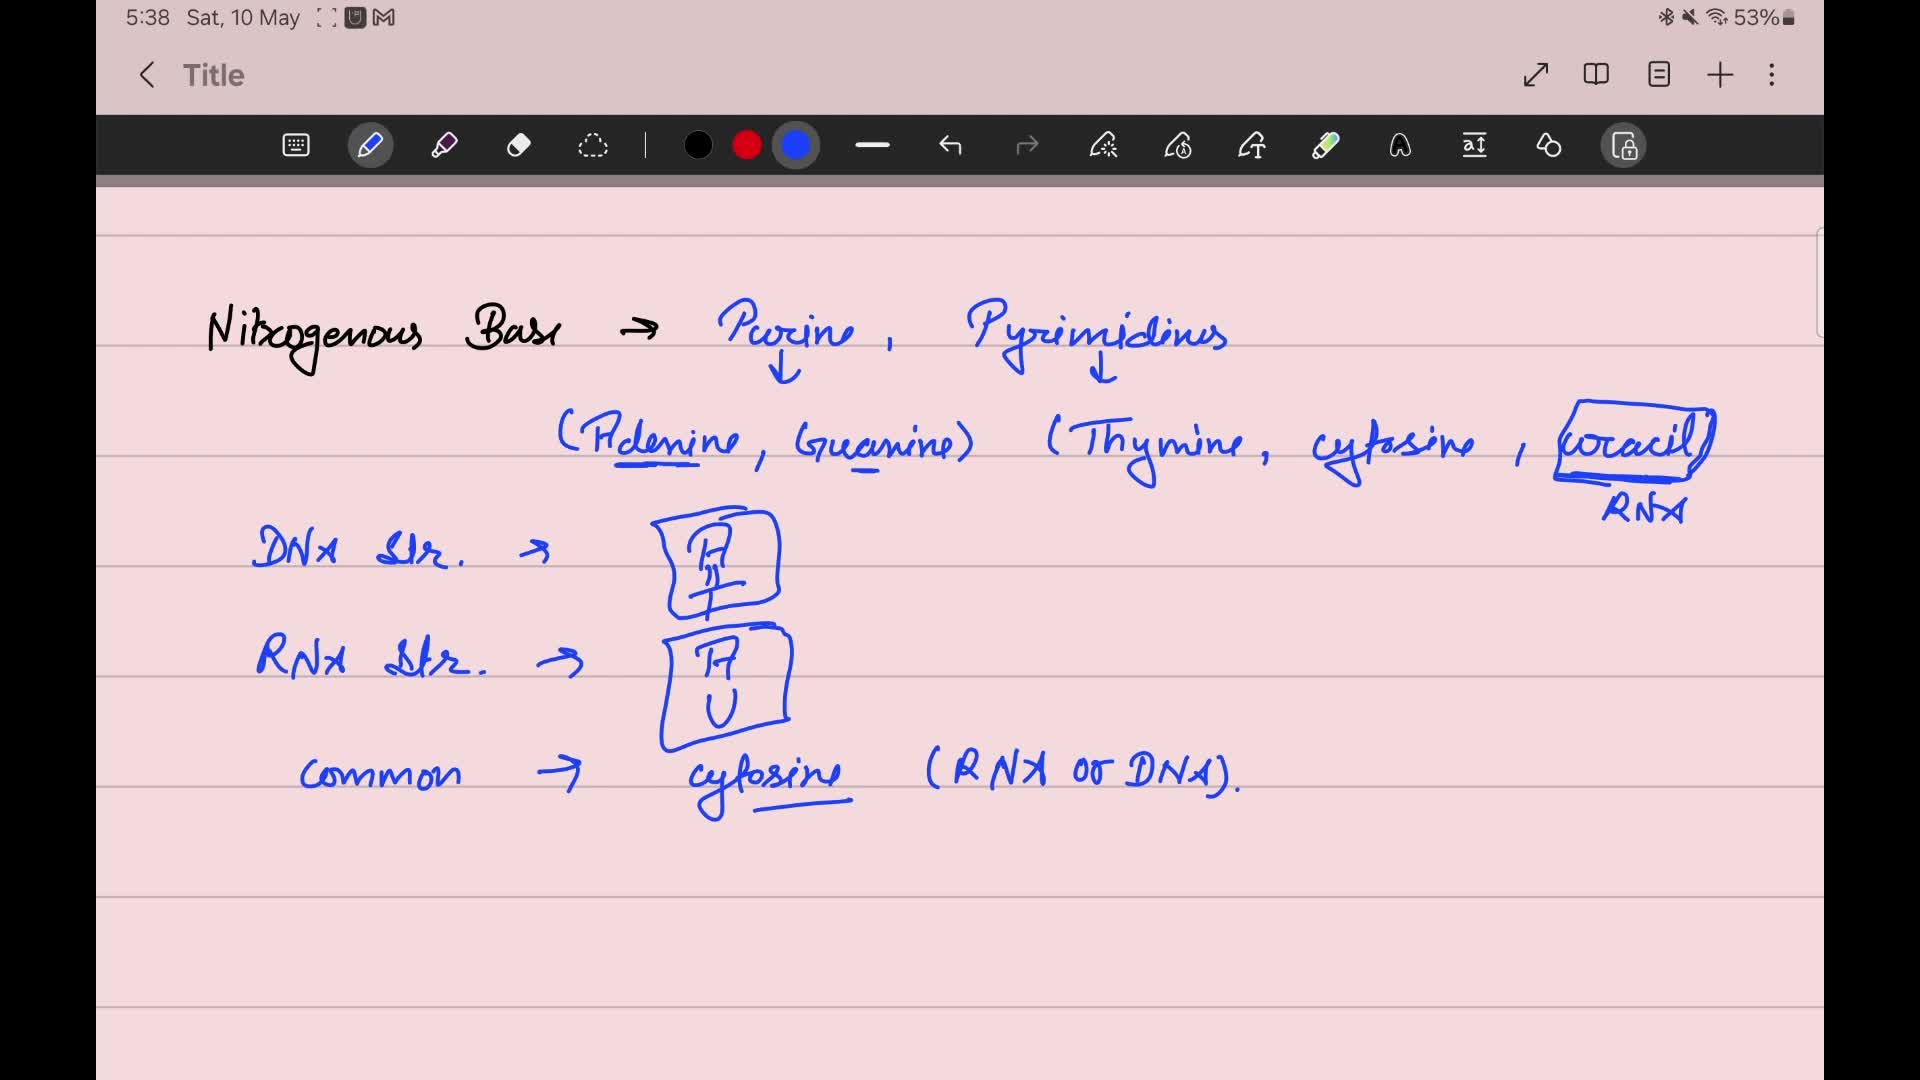 5:38 Sat, 10 May 53%
Title
Nitrogenous Base → Purine, Pyrimidines
(Adenine, Guanine) (Thymine, cytosine, uracil)
RNA
DNA Str. → A
T
RNA Str. → A
U
common → cytosine (RNA or DNA).